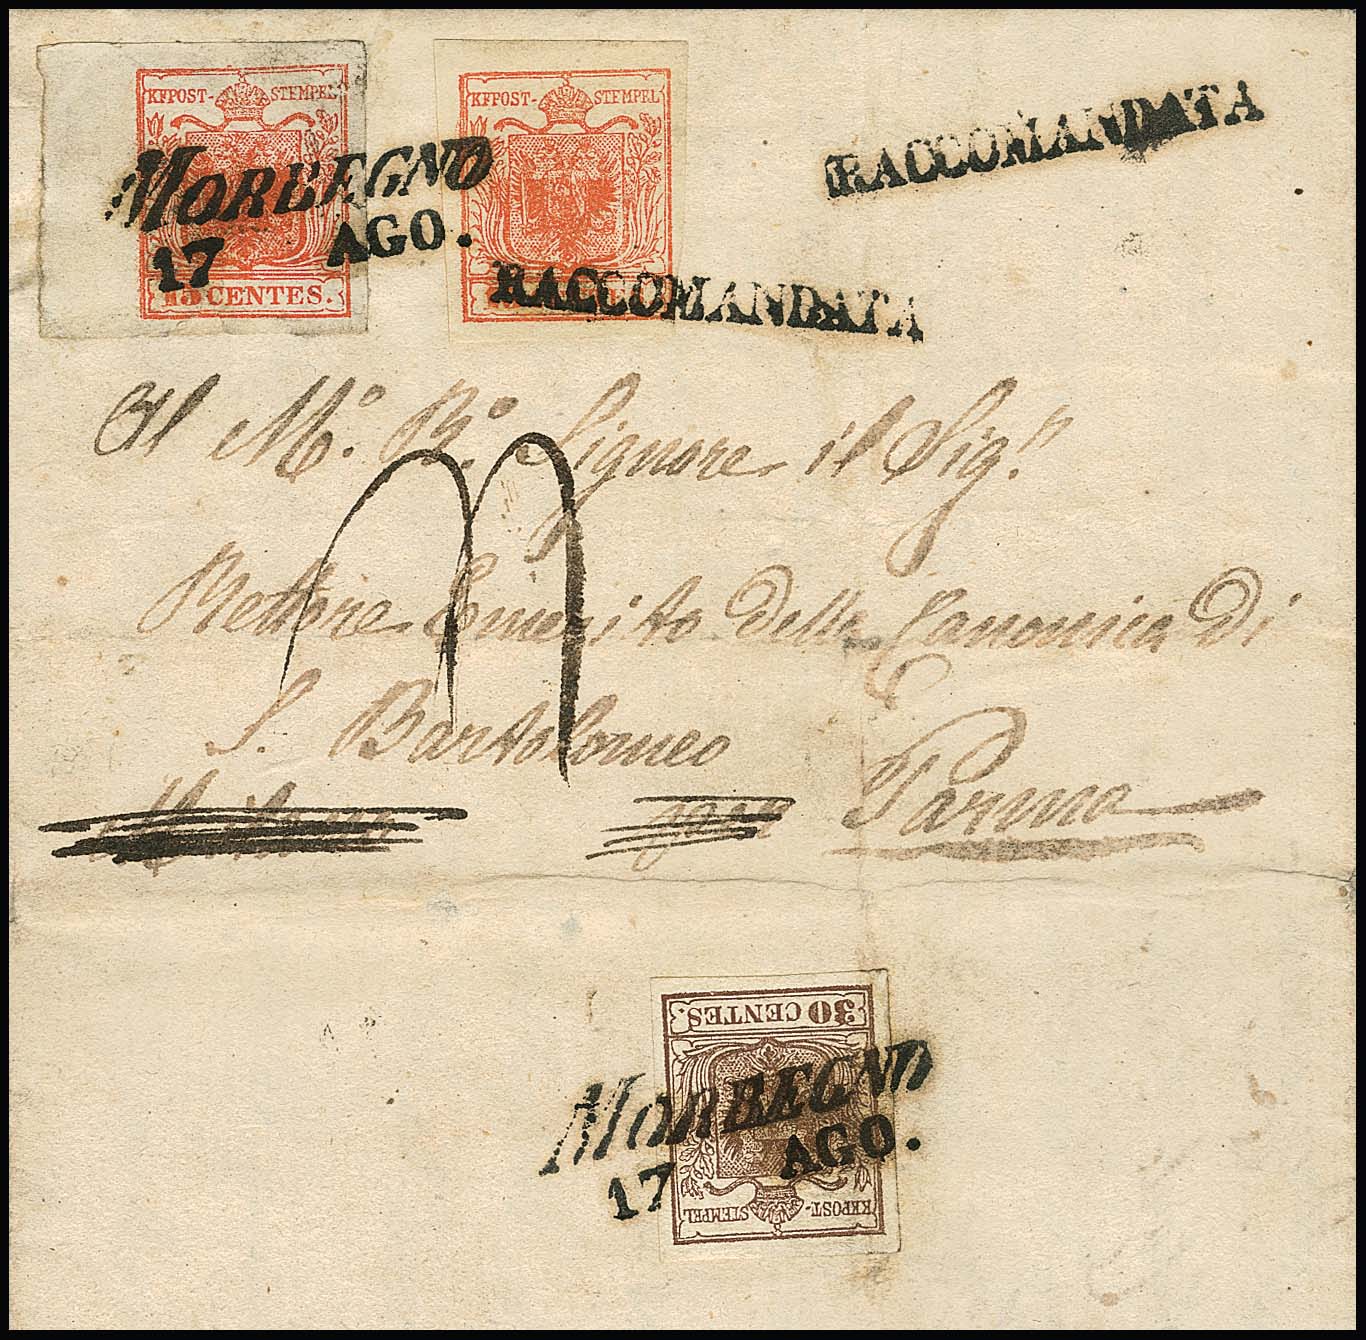 KKPOST- STEMPEL
KKPOST- STEMPEL
RACCOMANDATA
MORBEGNO
17 AGO.
15 CENTES.
RACCOMANDATA
Al M.º R.º Signore il Sig.r
Rettore Emerito della Canonica di
S. Bartolomeo
Parma
30 CENTES.
MORBEGNO
17 AGO.
KKPOST- STEMPEL